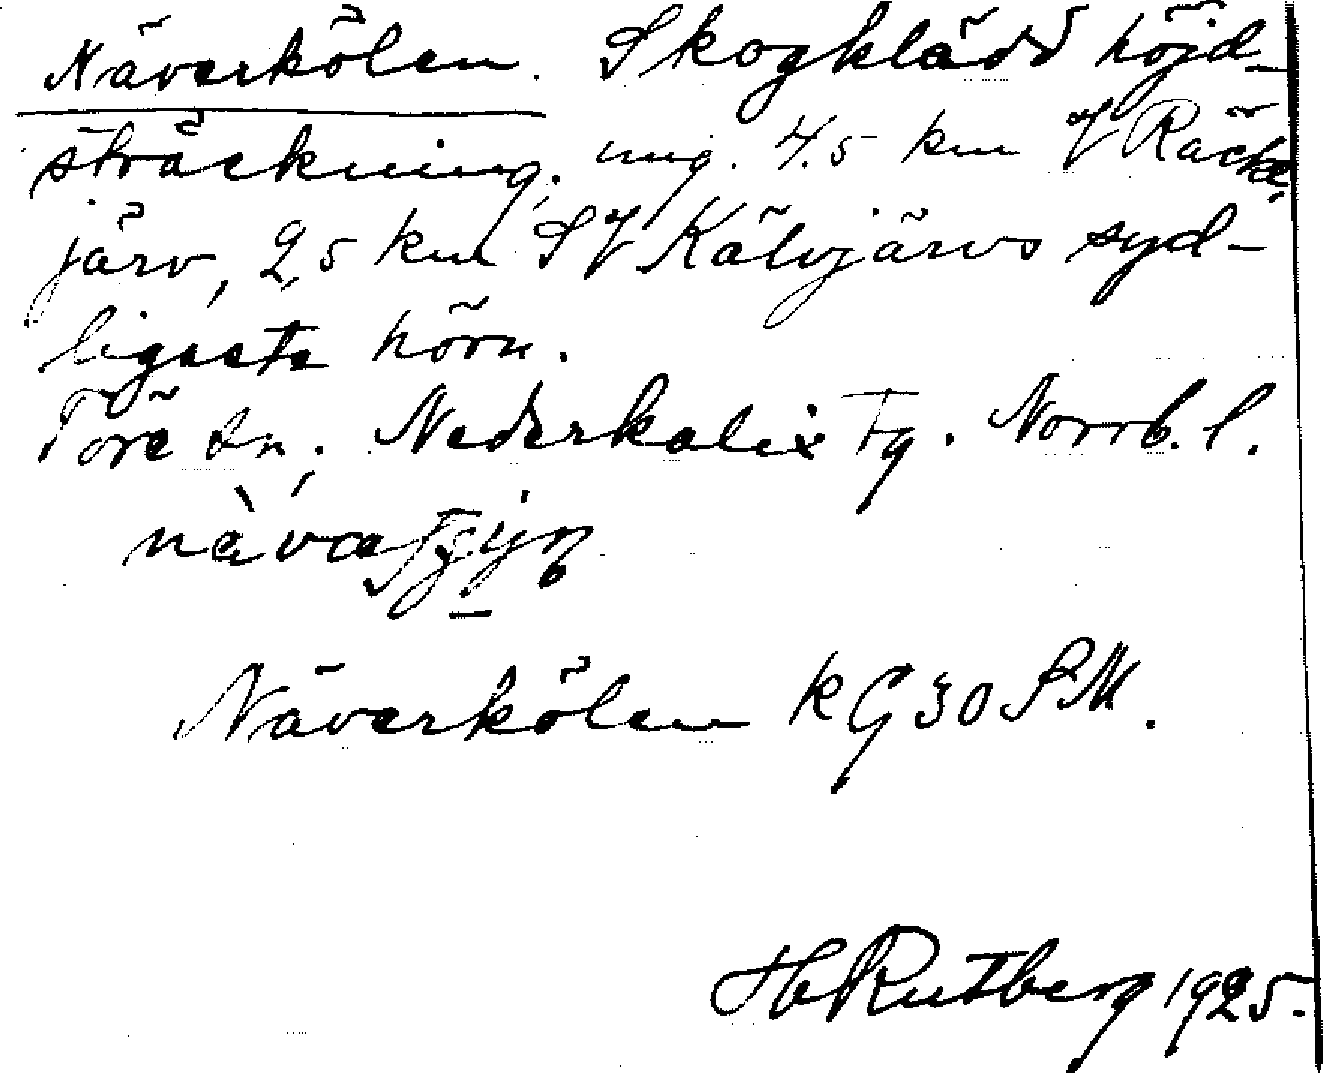 Näverkölen. Skogklädd höjd-
sträckning, ung. 4.5 km V Räckt
järv, 2,5 km SV Kälvjärvs syd-
ligaste hörn.
Töre sn. Nederkalix Tg. Norrb. l.
Näverkölen KG 30 SM.
H Rutberg 1925.